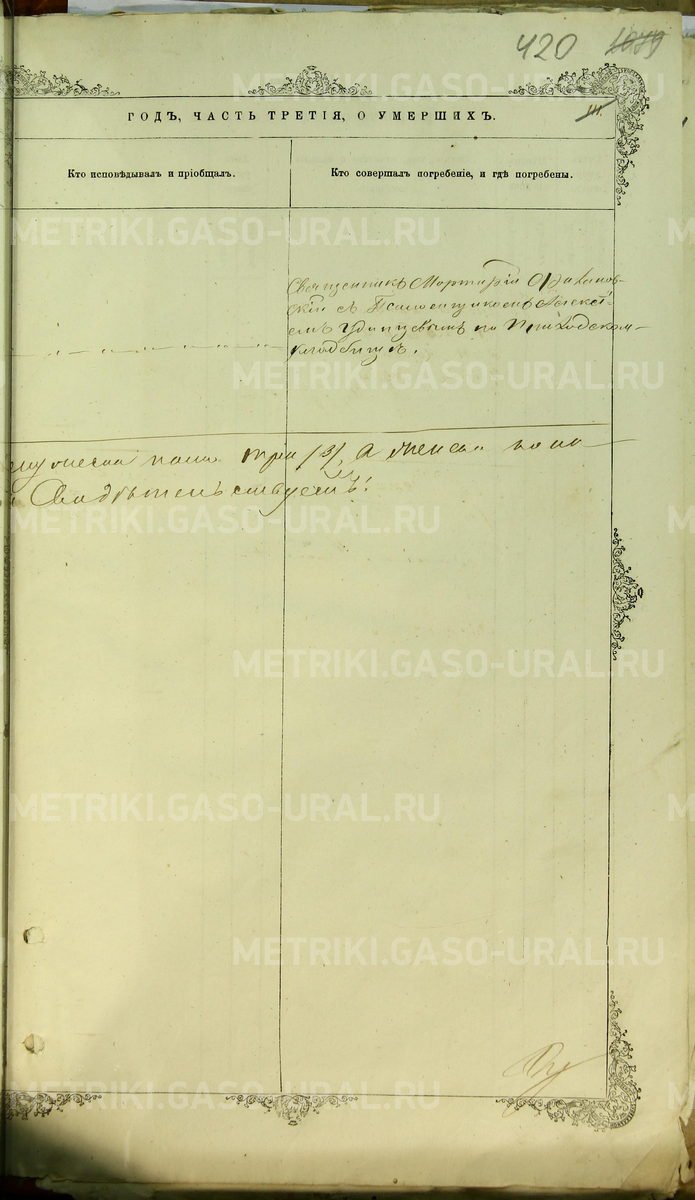 420 1079
ГОДЪ, ЧАСТЬ ТРЕТІЯ, О УМЕРШИХЪ.
Кто исповѣдывалъ и пріобщалъ.
Кто совершалъ погребеніе, и гдѣ погребены.
Священникъ Мартирій
скій съ Псаломщикомъ Алексѣ-
емъ Удинцевымъ на Приходском-
кладбищѣ.
пола три /3/, а женска пола
Свидѣтельствуемъ!
METRIKI.GASO-URAL.RU